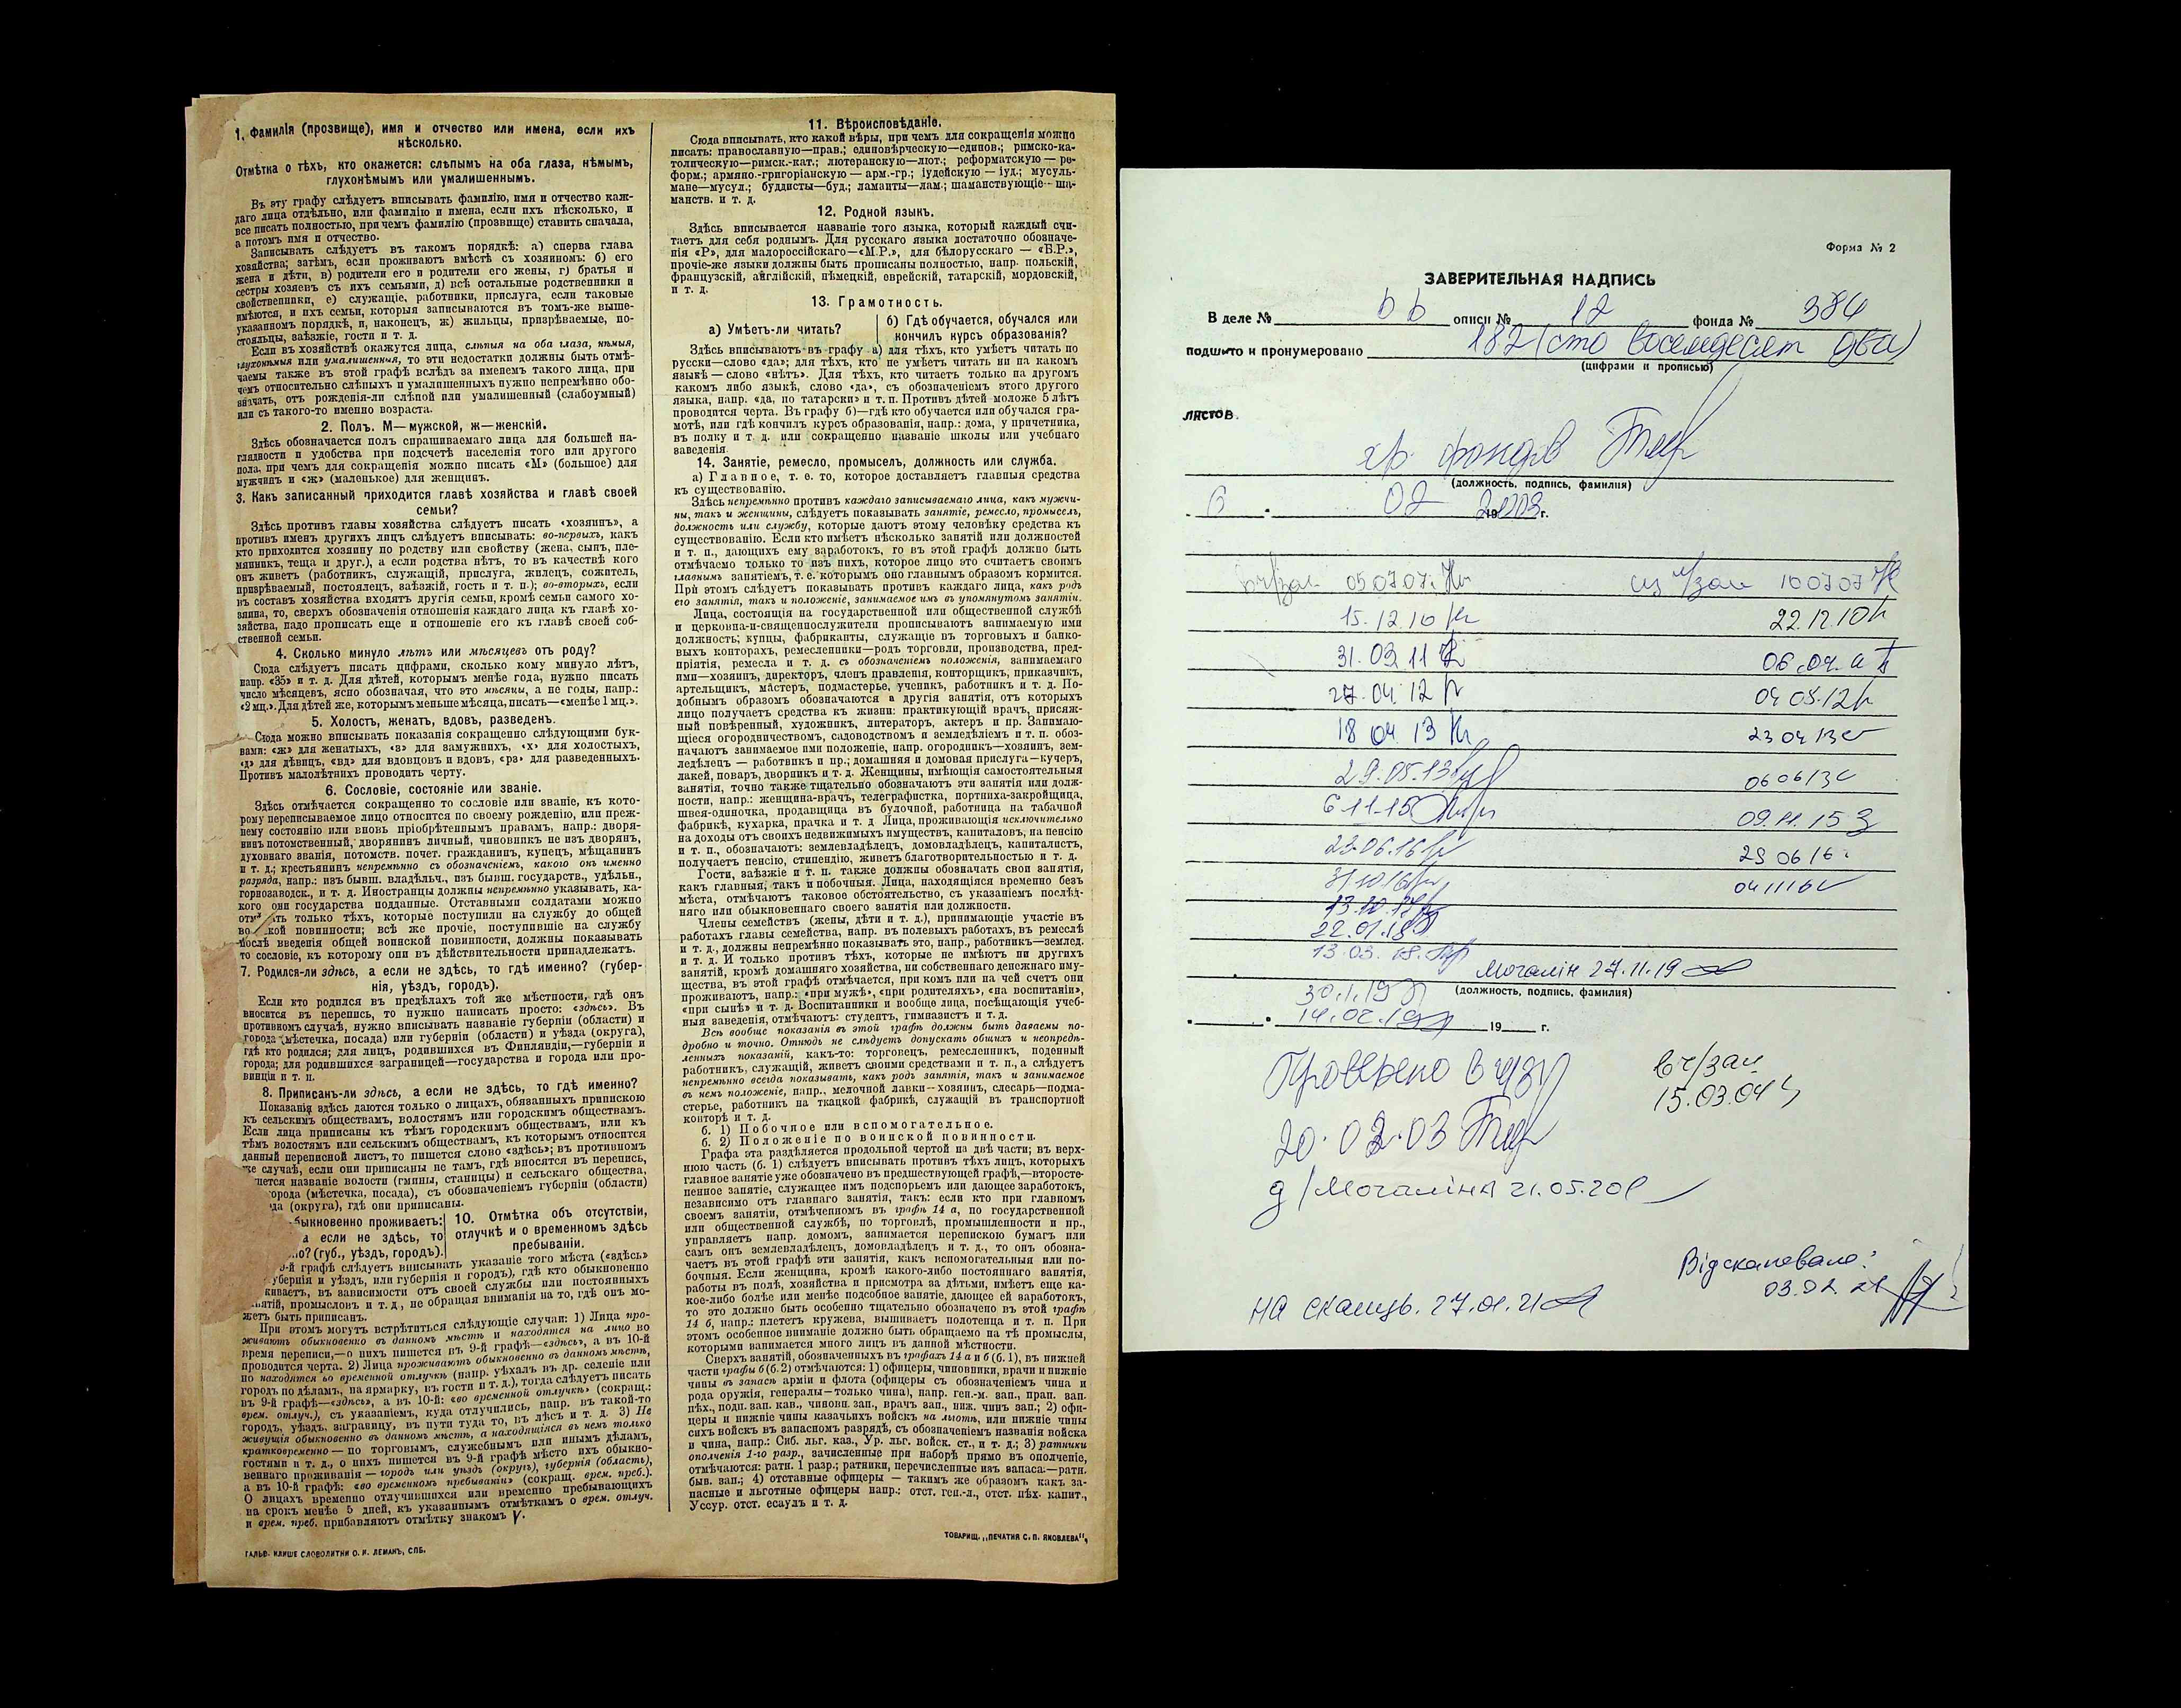 1. Фамилія (прозвище), имя и отчество или имена, если ихъ
нѣсколько.
Отмѣтка о тѣхъ, кто окажется: слѣпымъ на оба глаза, нѣмымъ,
глухонѣмымъ или умалишеннымъ.
Въ эту графу слѣдуетъ вписывать фамилію, имя и отчество каж-
даго лица отдѣльно, или фамилію и имена, если ихъ нѣсколько, и
все писать полностью, при чемъ фамилію (прозвище) ставить сначала,
а потомъ имя и отчество.
Записывать слѣдуетъ въ такомъ порядкѣ: а) сперва глава
хозяйства; затѣмъ, если проживаютъ вмѣстѣ съ хозяиномъ: б) его
жена и дѣти, в) родители его и родители его жены, г) братья и
сестры хозяевъ съ ихъ семьями, д) всѣ остальные родственники и
свойственники, е) служащіе, работники, прислуга, если таковые
имѣются, и ихъ семьи, которыя записываются въ томъ-же выше-
указанномъ порядкѣ, и, наконецъ, ж) жильцы, призрѣваемые, по-
стояльцы, заѣзжіе, гости и т. д.
Если въ хозяйствѣ окажутся лица, слѣпыя на оба глаза, нѣмыя,
глухонѣмыя или умалишенныя, то эти недостатки должны быть отмѣ-
чаемы также въ этой графѣ вслѣдъ за именемъ такого лица, при
чемъ относительно слѣпыхъ и умалишенныхъ нужно непремѣнно обо-
значать, отъ рожденія-ли слѣпой или умалишенный (слабоумный)
или съ такого-то именно возраста.
2. Полъ. М—мужской, ж—женскій.
Здѣсь обозначается полъ спрашиваемаго лица для большей на-
глядности и удобства при подсчетѣ населенія того или другого
пола, при чемъ для сокращенія можно писать «М» (большое) для
мужчинъ и «ж» (маленькое) для женщинъ.
3. Какъ записанный приходится главѣ хозяйства и главѣ своей
семьи?
Здѣсь противъ главы хозяйства слѣдуетъ писать «хозяинъ», а
противъ именъ другихъ лицъ слѣдуетъ вписывать: во-первыхъ, какъ
кто приходится хозяину по родству или свойству (жена, сынъ, пле-
мянникъ, теща и друг.), а если родства нѣтъ, то въ качествѣ кого
онъ живетъ (работникъ, служащій, прислуга, жилецъ, сожитель,
призрѣваемый, постоялецъ, заѣзжій, гость и т. п.); во-вторыхъ, если
въ составъ хозяйства входятъ другія семьи, кромѣ семьи самого хо-
зяина, то, сверхъ обозначенія отношенія каждаго лица къ главѣ хо-
зяйства, надо прописать еще и отношеніе его къ главѣ своей соб-
ственной семьи.
4. Сколько минуло лѣтъ или мѣсяцевъ отъ роду?
Сюда слѣдуетъ писать цифрами, сколько кому минуло лѣтъ,
напр. «35» и т. д. Для дѣтей, которымъ менѣе года, нужно писать
число мѣсяцевъ, ясно обозначая, что это мѣсяцы, а не годы, напр.:
«2 мц.». Для дѣтей же, которымъ меньше мѣсяца, писать—«менѣе 1 мц.».
5. Холостъ, женатъ, вдовъ, разведенъ.
Сюда можно вписывать показанія сокращенно слѣдующими бук-
вами: «ж» для женатыхъ, «з» для замужнихъ, «х» для холостыхъ,
«д» для дѣвицъ, «вд» для вдовцовъ и вдовъ, «рз» для разведенныхъ.
Противъ малолѣтнихъ проводить черту.
6. Сословіе, состояніе или званіе.
Здѣсь отмѣчается сокращенно то сословіе или званіе, къ кото-
рому переписываемое лицо относится по своему рожденію, или преж-
нему состоянію или вновь пріобрѣтеннымъ правамъ, напр.: дворя-
нинъ потомственный, дворянинъ личный, чиновникъ не изъ дворянъ,
духовнаго званія, потомств. почет. гражданинъ, купецъ, мѣщанинъ
и т. д.; крестьянинъ непремѣнно съ обозначеніемъ, какого онъ именно
разряда, напр.: изъ бывш. владѣльч., изъ бывш. государств., удѣльн.,
горнозаводск., и т. д. Иностранцы должны непремѣнно указывать, ка-
кого они государства подданные. Отставными солдатами можно
отм ать только тѣхъ, которые поступили на службу до общей
во ской повинности; всѣ же прочіе, поступившіе на службу
послѣ введенія общей воинской повинности, должны показывать
то сословіе, къ которому они въ дѣйствительности принадлежатъ.
7. Родился-ли здѣсь, а если не здѣсь, то гдѣ именно? (губер-
нія, уѣздъ, городъ).
Если кто родился въ предѣлахъ той же мѣстности, гдѣ онъ
вносится въ перепись, то нужно написать просто: «здѣсь». Въ
противномъ случаѣ, нужно вписывать названіе губерніи (области) и
города (мѣстечка, посада) или губерніи (области) и уѣзда (округа),
гдѣ кто родился; для лицъ, родившихся въ Финляндіи,—губерніи и
города; для родившихся заграницей—государства и города или про-
винціи и т. п.
8. Приписанъ-ли здѣсь, а если не здѣсь, то гдѣ именно?
Показанія здѣсь даются только о лицахъ, обязанныхъ припискою
къ сельскимъ обществамъ, волостямъ или городскимъ обществамъ.
Если лица приписаны къ тѣмъ городскимъ обществамъ, или къ
тѣмъ волостямъ или сельскимъ обществамъ, къ которымъ относится
данный переписной листъ, то пишется слово «здѣсь»; въ противномъ
же случаѣ, если они приписаны не тамъ, гдѣ вносятся въ перепись,
шется названіе волости (гмины, станицы) и сельскаго общества,
города (мѣстечка, посада), съ обозначеніемъ губерніи (области)
да (округа), гдѣ они приписаны.
быкновенно проживаетъ:
а если не здѣсь, то
но? (губ., уѣздъ, городъ).
10. Отмѣтка объ отсутствіи,
отлучкѣ и о временномъ здѣсь
пребываніи.
9-й графѣ слѣдуетъ вписывать указаніе того мѣста («здѣсь»
губернія и уѣздъ, или губернія и городъ), гдѣ кто обыкновенно
живаетъ, въ зависимости отъ своей службы или постоянныхъ
нятій, промысловъ и т. д., не обращая вниманія на то, гдѣ онъ мо-
жетъ быть приписанъ.
При этомъ могутъ встрѣтиться слѣдующіе случаи: 1) Лица про-
живаютъ обыкновенно въ данномъ мѣстѣ и находятся на лицо во
время переписи,—о нихъ пишется въ 9-й графѣ—«здѣсь», а въ 10-й
проводится черта. 2) Лица проживаютъ обыкновенно въ данномъ мѣстѣ,
но находятся во временной отлучкѣ (напр. уѣхалъ въ др. селеніе или
городъ по дѣламъ, на ярмарку, въ гости и т. д.), тогда слѣдуетъ писать
въ 9-й графѣ—«здѣсь», а въ 10-й: «во временной отлучкѣ» (сокращ.:
врем. отлуч.), съ указаніемъ, куда отлучились, напр. въ такой-то
городъ, уѣздъ, заграницу, въ пути туда то, въ лѣсъ и т. д. 3) Не
живущія обыкновенно въ данномъ мѣстѣ, а находящіяся въ немъ только
кратковременно — по торговымъ, служебнымъ или инымъ дѣламъ,
гостями и т. д., о нихъ пишется въ 9-й графѣ мѣсто ихъ обыкно-
веннаго проживанія — городъ или уѣздъ (округъ), губернія (область),
а въ 10-й графѣ: «во временномъ пребываніи» (сокращ. врем. преб.).
О лицахъ временно отлучившихся или временно пребывающихъ
на срокъ менѣе 5 дней, къ указаннымъ отмѣткамъ о врем. отлуч.
и врем. преб. прибавляютъ отмѣтку знакомъ V.
ГАЛЬВ. КЛИШЕ СЛОВОЛИТНИ О. И. ЛЕМАНЪ, СПБ.
11. Вѣроисповѣданіе.
Сюда вписывать, кто какой вѣры, при чемъ для сокращенія можно
писать: православную—прав.; единовѣрческую—единов.; римско-ка-
толическую—римск.-кат.; лютеранскую—лют.; реформатскую — ре-
форм.; армяно.-григоріанскую — арм.-гр.; іудейскую — іуд.; мусуль-
мане—мусул.; буддисты—буд.; ламаиты—лам.; шаманствующіе—ша-
манств. и т. д.
12. Родной языкъ.
Здѣсь вписывается названіе того языка, который каждый счи-
таетъ для себя роднымъ. Для русскаго языка достаточно обозначе-
нія «Р», для малороссійскаго—«М.Р.», для бѣлорусскаго — «Б.Р.»,
прочіе-же языки должны быть прописаны полностью, напр. польскій,
французскій, англійскій, нѣмецкій, еврейскій, татарскій, мордовскій,
и т. д.
13. Грамотность.
а) Умѣетъ-ли читать?
б) Гдѣ обучается, обучался или
кончилъ курсъ образованія?
Здѣсь вписываютъ въ графу а) для тѣхъ, кто умѣетъ читать по
русски—слово «да»; для тѣхъ, кто не умѣетъ читать ни на какомъ
языкѣ — слово «нѣтъ». Для тѣхъ, кто читаетъ только на другомъ
какомъ либо языкѣ, слово «да», съ обозначеніемъ этого другого
языка, напр. «да, по татарски» и т. п. Противъ дѣтей моложе 5 лѣтъ
проводится черта. Въ графу б)—гдѣ кто обучается или обучался гра-
мотѣ, или гдѣ кончилъ курсъ образованія, напр.: дома, у причетника,
въ полку и т. д. или сокращенно названіе школы или учебнаго
заведенія.
14. Занятіе, ремесло, промыселъ, должность или служба.
а) Главное, т. е. то, которое доставляетъ главныя средства
къ существованію.
Здѣсь непремѣнно противъ каждаго записываемаго лица, какъ мужчи-
ны, такъ и женщины, слѣдуетъ показывать занятіе, ремесло, промыселъ,
должность или службу, которые даютъ этому человѣку средства къ
существованію. Если кто имѣетъ нѣсколько занятій или должностей
и т. п., дающихъ ему заработокъ, то въ этой графѣ должно быть
отмѣчаемо только то изъ нихъ, которое лицо это считаетъ своимъ
главнымъ занятіемъ, т. е. которымъ оно главнымъ образомъ кормится.
При этомъ слѣдуетъ показывать противъ каждаго лица, какъ родъ
его занятія, такъ и положеніе, занимаемое имъ въ упомянутомъ занятіи.
Лица, состоящія на государственной или общественной службѣ
и церковно-и-священнослужители прописываютъ занимаемую ими
должность; купцы, фабриканты, служащіе въ торговыхъ и банко-
выхъ конторахъ, ремесленники—родъ торговли, производства, пред-
пріятія, ремесла и т. д. съ обозначеніемъ положенія, занимаемаго
ими—хозяинъ, директоръ, членъ правленія, конторщикъ, приказчикъ,
артельщикъ, мастеръ, подмастерье, ученикъ, работникъ и т. д. По-
добнымъ образомъ обозначаются а другія занятія, отъ которыхъ
лицо получаетъ средства къ жизни: практикующій врачъ, присяж-
ный повѣренный, художникъ, литераторъ, актеръ и пр. Занимаю-
щіеся огородничествомъ, садоводствомъ и земледѣліемъ и т. п. обоз-
начаютъ занимаемое ими положеніе, напр. огородникъ—хозяинъ, зем-
ледѣлецъ — работникъ и пр.; домашняя и домовая прислуга—кучеръ,
лакей, поваръ, дворникъ и т. д. Женщины, имѣющія самостоятельныя
занятія, точно также тщательно обозначаютъ эти занятія или долж-
ности, напр.: женщина-врачъ, телеграфистка, портниха-закройщица,
швея-одиночка, продавщица въ булочной, работница на табачной
фабрикѣ, кухарка, прачка и т. д Лица, проживающія исключительно
на доходы отъ своихъ недвижимыхъ имуществъ, капиталовъ, на пенсію
и т. п., обозначаютъ: землевладѣлецъ, домовладѣлецъ, капиталистъ,
получаетъ пенсію, стипендію, живетъ благотворительностью и т. д.
Гости, заѣзжіе и т. п. также должны обозначать свои занятія,
какъ главныя, такъ и побочныя. Лица, находящіяся временно безъ
мѣста, отмѣчаютъ таковое обстоятельство, съ указаніемъ послѣд-
няго или обыкновеннаго своего занятія или должности.
Члены семействъ (жены, дѣти и т. д.), принимающіе участіе въ
работахъ главы семейства, напр. въ полевыхъ работахъ, въ ремеслѣ
и т. д., должны непремѣнно показывать это, напр., работникъ—землед.
и т. д. И только противъ тѣхъ, которые не имѣютъ ни другихъ
занятій, кромѣ домашняго хозяйства, ни собственнаго денежнаго иму-
щества, въ этой графѣ отмѣчается, при комъ или на чей счетъ они
проживаютъ, напр.: «при мужѣ», «при родителяхъ», «на воспитаніи»,
«при сынѣ» и т. д. Воспитанники и вообще лица, посѣщающія учеб-
ныя заведенія, отмѣчаютъ: студентъ, гимназистъ и т. д.
Всѣ вообще показанія въ этой графѣ должны быть даваемы по-
дробно и точно. Отнюдь не слѣдуетъ допускать общихъ и неопредѣ-
ленныхъ показаній, какъ-то: торговецъ, ремесленникъ, поденный
работникъ, служащій, живетъ своими средствами и т. п., а слѣдуетъ
непремѣнно всегда показывать, какъ родъ занятія, такъ и занимаемое
въ немъ положеніе, напр., мелочной лавки—хозяинъ, слесарь—подма-
стерье, работникъ на ткацкой фабрикѣ, служащій въ транспортной
конторѣ и т. д.
б. 1) Побочное или вспомогательное.
б. 2) Положеніе по воинской повинности.
Графа эта раздѣляется продольной чертой на двѣ части; въ верх-
нюю часть (б. 1) слѣдуетъ вписывать противъ тѣхъ лицъ, которыхъ
главное занятіе уже обозначено въ предшествующей графѣ,—второсте-
пенное занятіе, служащее имъ подспорьемъ или дающее заработокъ,
независимо отъ главнаго занятія, такъ: если кто при главномъ
своемъ занятіи, отмѣченномъ въ графѣ 14 а, по государственной
или общественной службѣ, по торговлѣ, промышленности и пр.,
управляетъ напр. домомъ, занимается перепискою бумагъ или
самъ онъ землевладѣлецъ, домовладѣлецъ и т. д., то онъ обозна-
чаетъ въ этой графѣ эти занятія, какъ вспомогательныя или по-
бочныя. Если женщина, кромѣ какого-либо постояннаго занятія,
работы въ полѣ, хозяйства и присмотра за дѣтьми, имѣетъ еще ка-
кое-либо болѣе или менѣе подсобное занятіе, дающее ей заработокъ,
то это должно быть особенно тщательно обозначено въ этой графѣ
14 б, напр.: плететъ кружева, вышиваетъ полотенца и т. п. При
этомъ особенное вниманіе должно быть обращаемо на тѣ промыслы,
которыми занимается много лицъ въ данной мѣстности.
Сверхъ занятій, обозначенныхъ въ графахъ 14 а и б (б. 1), въ нижней
части графы б (б. 2) отмѣчаются: 1) офицеры, чиновники, врачи и нижніе
чины въ запасѣ арміи и флота (офицеры съ обозначеніемъ чина и
рода оружія, генералы—только чина), напр. ген.-м. зап., прап. зап.
пѣх., подп. зап. кав., чиновн. зап., врачъ зап., ниж. чинъ зап.; 2) офи-
церы и нижніе чины казачьихъ войскъ на льготѣ, или нижніе чины
сихъ войскъ въ запасномъ разрядѣ, съ обозначеніемъ названія войска
и чина, напр.: Сиб. льг. каз., Ур. льг. войск. ст., и т. д.; 3) ратники
ополченія 1-го разр., зачисленные при наборѣ прямо въ ополченіе,
отмѣчаются: ратн. 1 разр.; ратники, перечисленные изъ запаса:—ратн.
быв. зап.; 4) отставные офицеры — такимъ же образомъ какъ за-
пасные и льготные офицеры напр.: отст. ген.-л., отст. пѣх. капит.,
Уссур. отст. есаулъ и т. д.
ТОВАРИЩ. „ПЕЧАТНЯ С. П. ЯКОВЛЕВА",
Форма № 2
ЗАВЕРИТЕЛЬНАЯ НАДПИСЬ
В деле № 66 описи № 12 фонда № 384
подшито и пронумеровано 182 (сто восемдесят два)
(цифрами и прописью)
ЛИСТОВ.
хр. фондов
(должность, подпись, фамилия)
6 02 2003 г.
в ч/зал 05 07 07. из ч/зал 10 07 07
15.12.10 22.12.10
31.03 11 06.04.11
27.04.12 04 05.12
18 04 13 23 04 13
29.05.13 06 06 13
6 11.15 09.11.15
23.06.16 29 06 16.
31 10 16 04 11 16
13.10.17
22.01.18
13.03.18.
Мочалін 27.11.19
(должность, подпись, фамилия)
30.1.19
14.02.19
19 г.
Проверено в ч/зу
20.02.03
в ч/зал
15.03.04
д/Мочаліна 21.05.20
Відскановано:
03.02 21
на сканув. 27.01.21